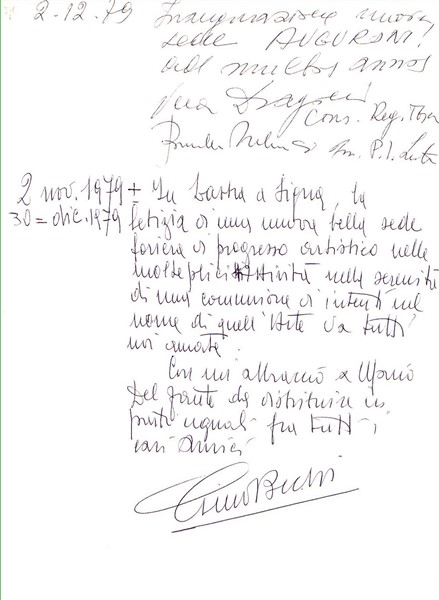 2.12.79 Inaugurazione nuova
sede AUGURONI!
ad multos annos
Vera Dragoni
Cons. Reg. Tosc
P.I.
2 nov. 1979 + In Lastra a Signa, la
30 = dic. 1979 letizia di una nuova bella sede
foriera di progresso artistico nelle
molteplici attività nella serenità
di una comunione di intenti nel
nome di quell'Arte da tutti
noi amata.
Con un abbraccio a Mario
Del Fonte da distribuire in
parti uguali fra tutti i
cari Amici